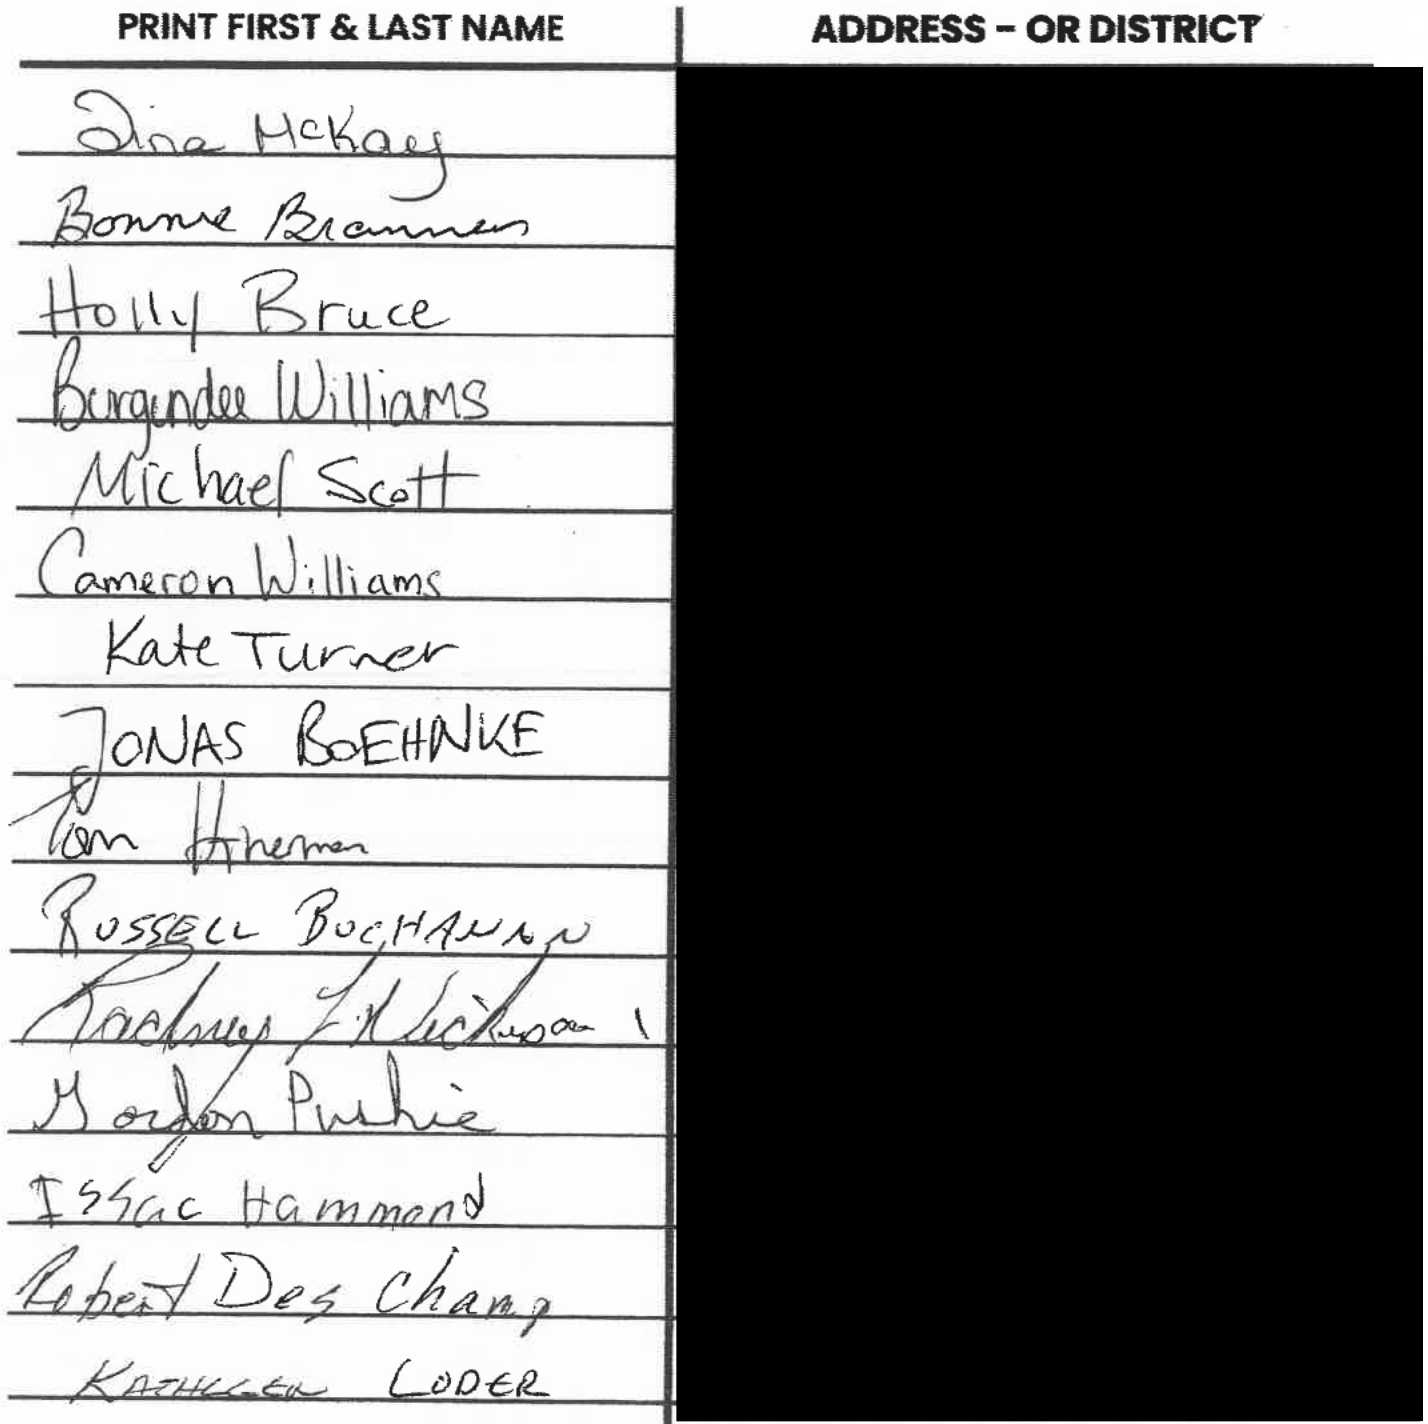 PRINT FIRST & LAST NAME ADDRESS – OR DISTRICT
Tina McKay
Bonnie Brannen
Holly Bruce
Burgundee Williams
Michael Scott
Cameron Williams
Kate Turner
JONAS BOEHNKE
Tom Hineman
RUSSELL BUCHANAN
Rodney L Nickerson
Gordon Pushie
Issac Hammond
Robert Des Champ
KATHLEEN LODER